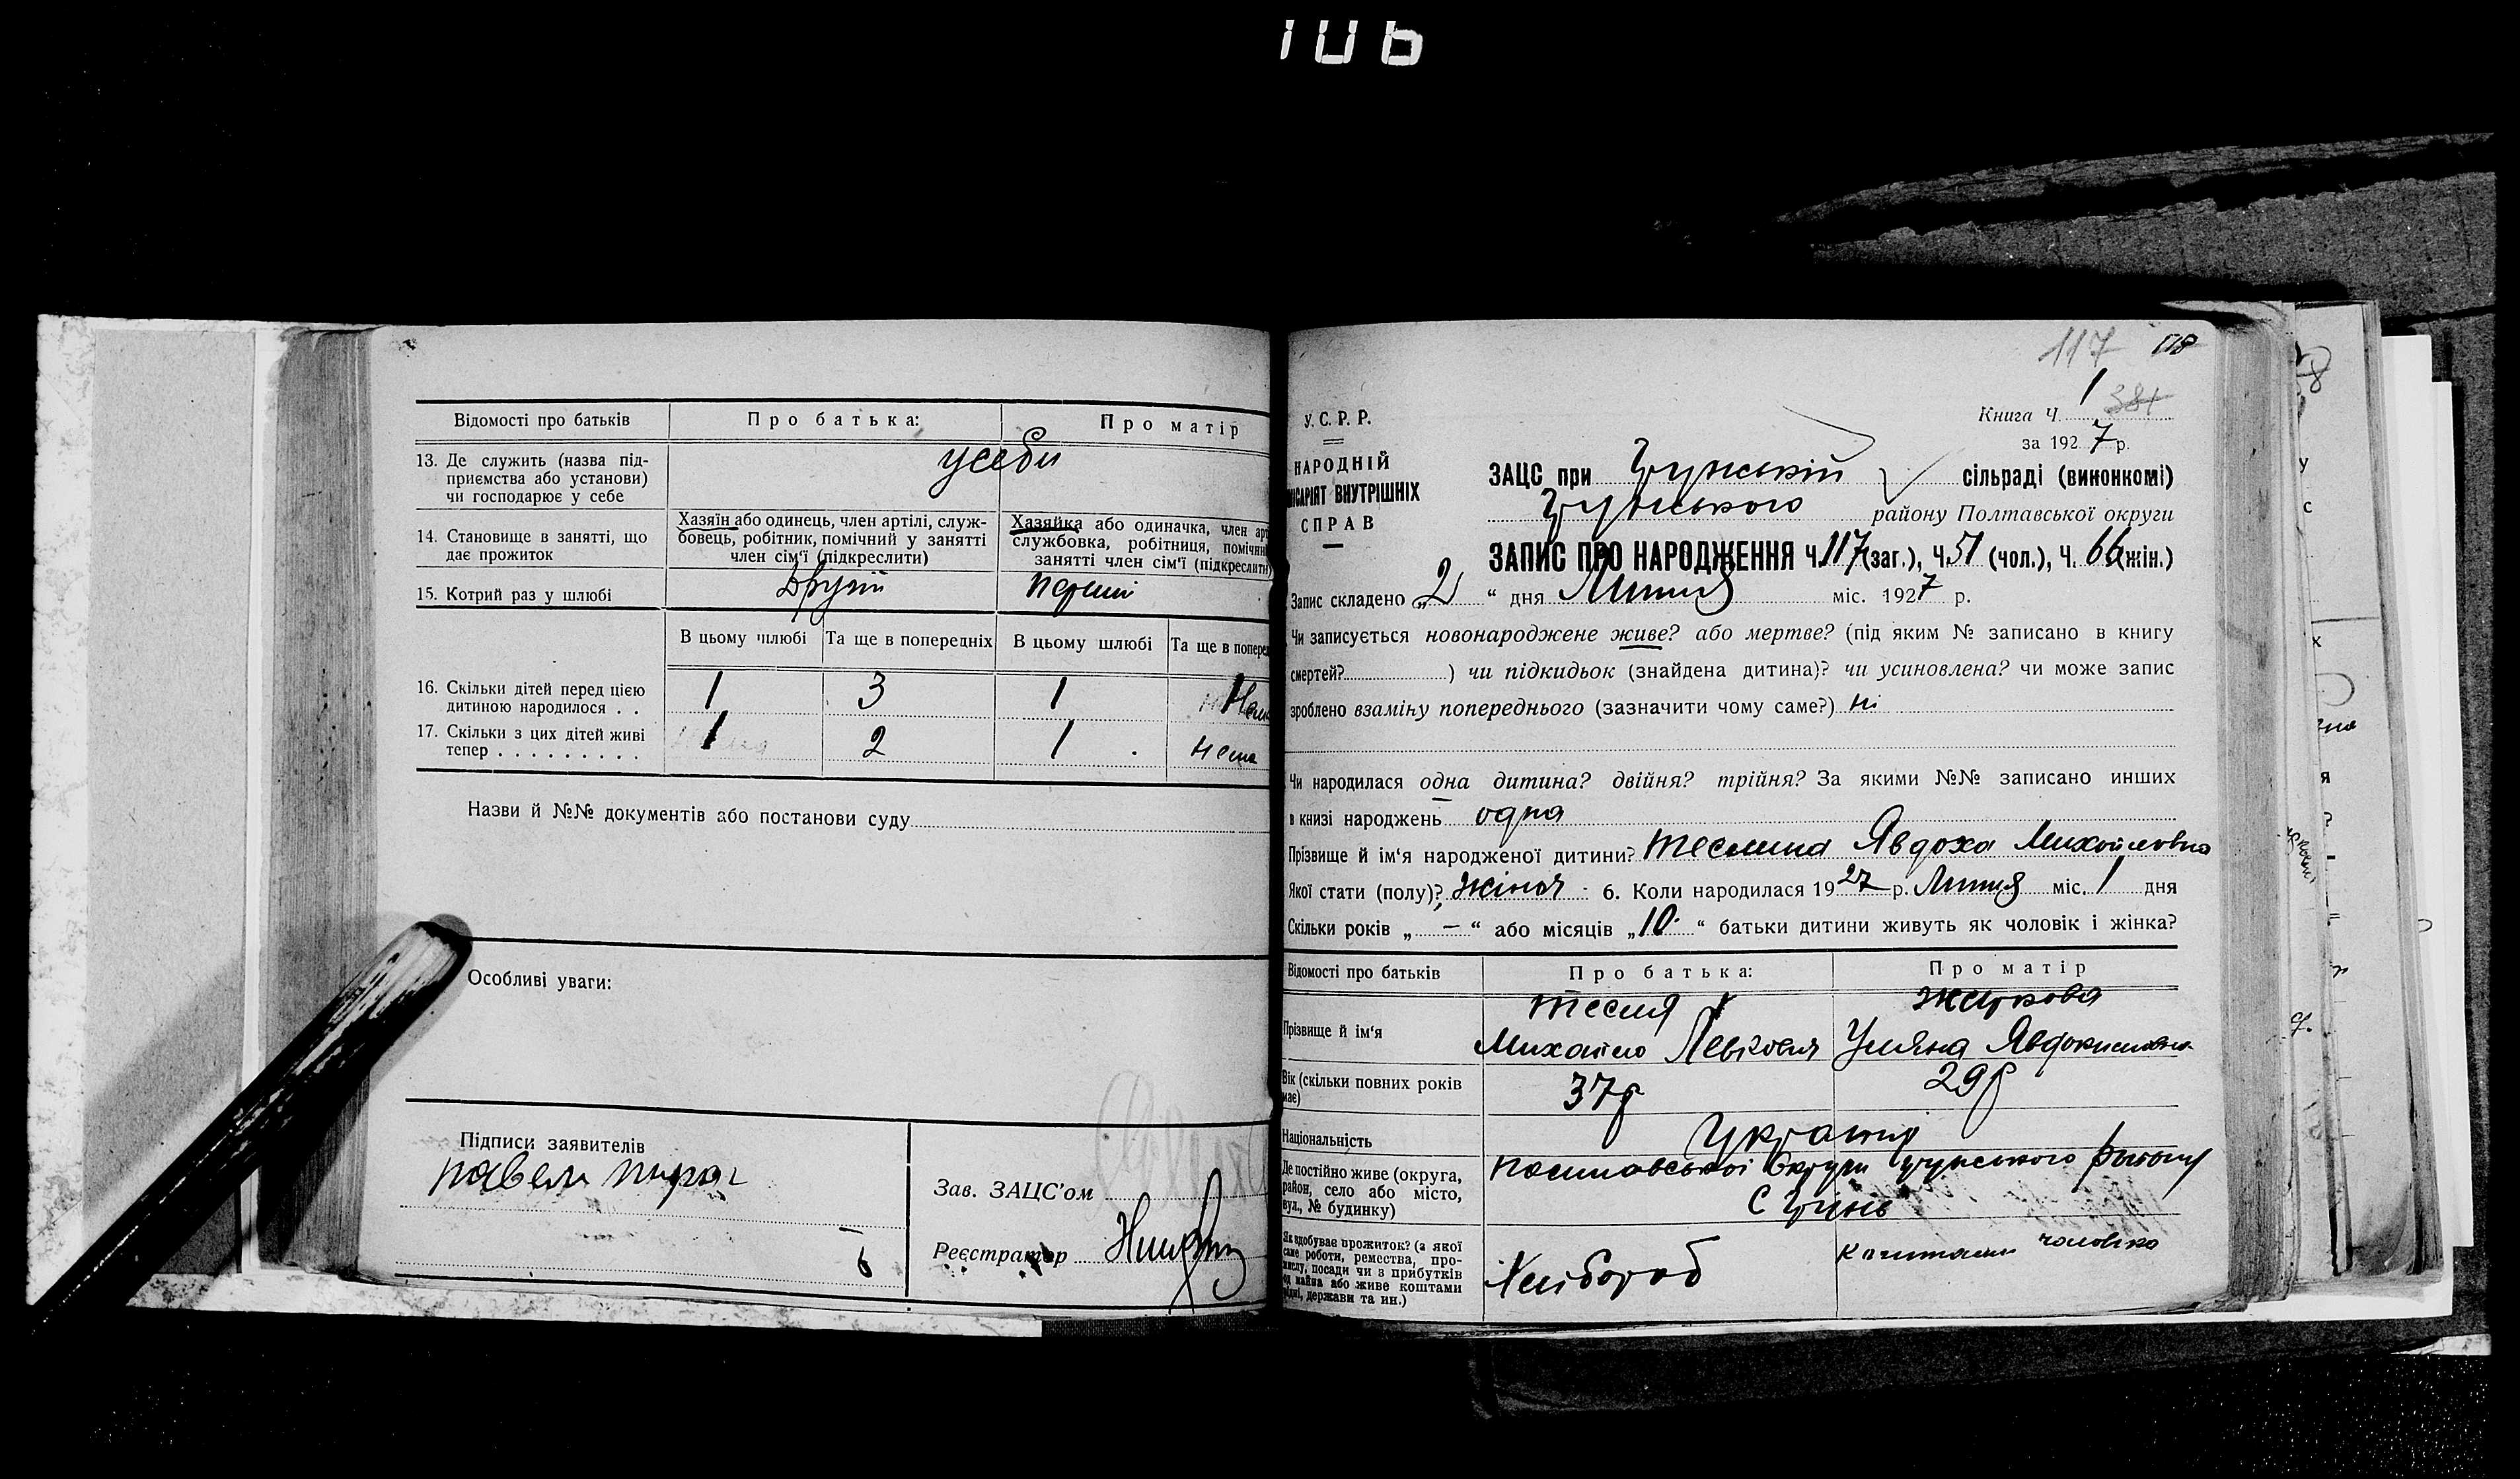 106
Відомості про батьків
Про батька:
Про матір
13. Де служить (назва під-
приємства або установи)
чи господарює у себе
усеби
14. Становище в занятті, що
дає прожиток
Хазяїн або одинець, член артілі, служ-
бовець, робітник, помічний у занятті
член сім'ї (підкреслити)
Хазяйка або одиначка, член арт
службовка, робітниця, помічни
занятті член сім'ї (підкреслити)
15. Котрий раз у шлюбі
Другий
перший
В цьому шлюбі
Та ще в попередніх
В цьому шлюбі
Та ще в поперед
16. Скільки дітей перед цією
дитиною народилося . .
1
3
1
17. Скільки з цих дітей живі
тепер . . . . . . . . .
1
2
1
нема
Назви й №№ документів або постанови суду
Особливі уваги:
Підписи заявителів
павел
Зав. ЗАЦС'ом
Реєстратор
117
118
У.С.Р.Р.
НАРОДНІЙ
ІСАРІЯТ ВНУТРІШНІХ
СПРАВ
Книга Ч. 1 381
за 1927 р.
ЗАЦС при Грунській сільраді (виконкомі)
Грунського району Полтавської округи
ЗАПИС ПРО НАРОДЖЕННЯ Ч. 117 (заг.), Ч. 51 (чол.), Ч. 66 (жін.)
Запис складено „2“ дня Липня міс. 1927 р.
Чи записується новонароджене живе? або мертве? (під яким № записано в книгу
смертей? ) чи підкидьок (знайдена дитина)? чи усиновлена? чи може запис
зроблено взаміну попереднього (зазначити чому саме?) ні
Чи народилася одна дитина? двійня? трійня? За якими №№ записано инших
в книзі народжень одна
Прізвище й ім'я народженої дитини? Явдоха Михайловна
Якої стати (полу)? жіноч 6. Коли народилася 1927 р. Липня міс. 1 дня
Скільки років „—“ або місяців „10“ батьки дитини живуть як чоловік і жінка?
Відомості про батьків
Про батька:
Про матір
Прізвище й ім'я
Тесля
Михайло
Уляна
Вік (скільки повних років
має)
37р
29р
Національність
Де постійно живе (округа,
район, село або місто,
вул., № будинку)
Полтавської Округи Грунського району
с Грунь
Як здобуває прожиток? (з якої
саме роботи, ремества, про-
мислу, посади чи з прибутків
од майна або живе коштами
рідні, держави та ин.)
Хлібороб
чоловіка